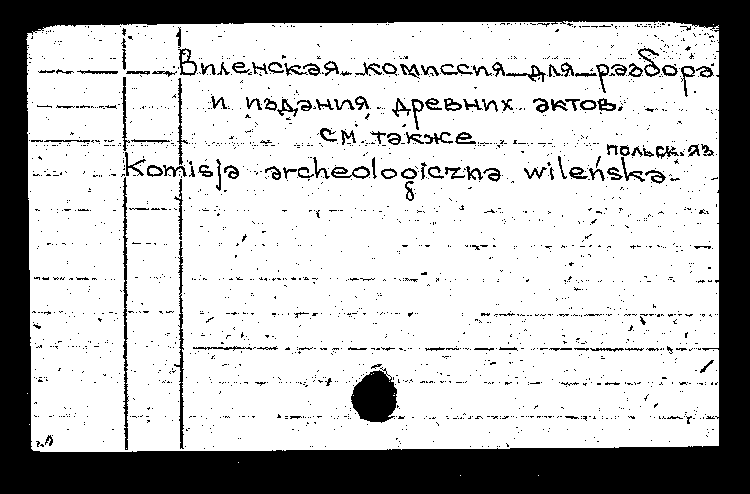 Виленская комиссия для разбора
и издания древних актов.
см также
польск. яз
Komisja archeologiczna wileńska.